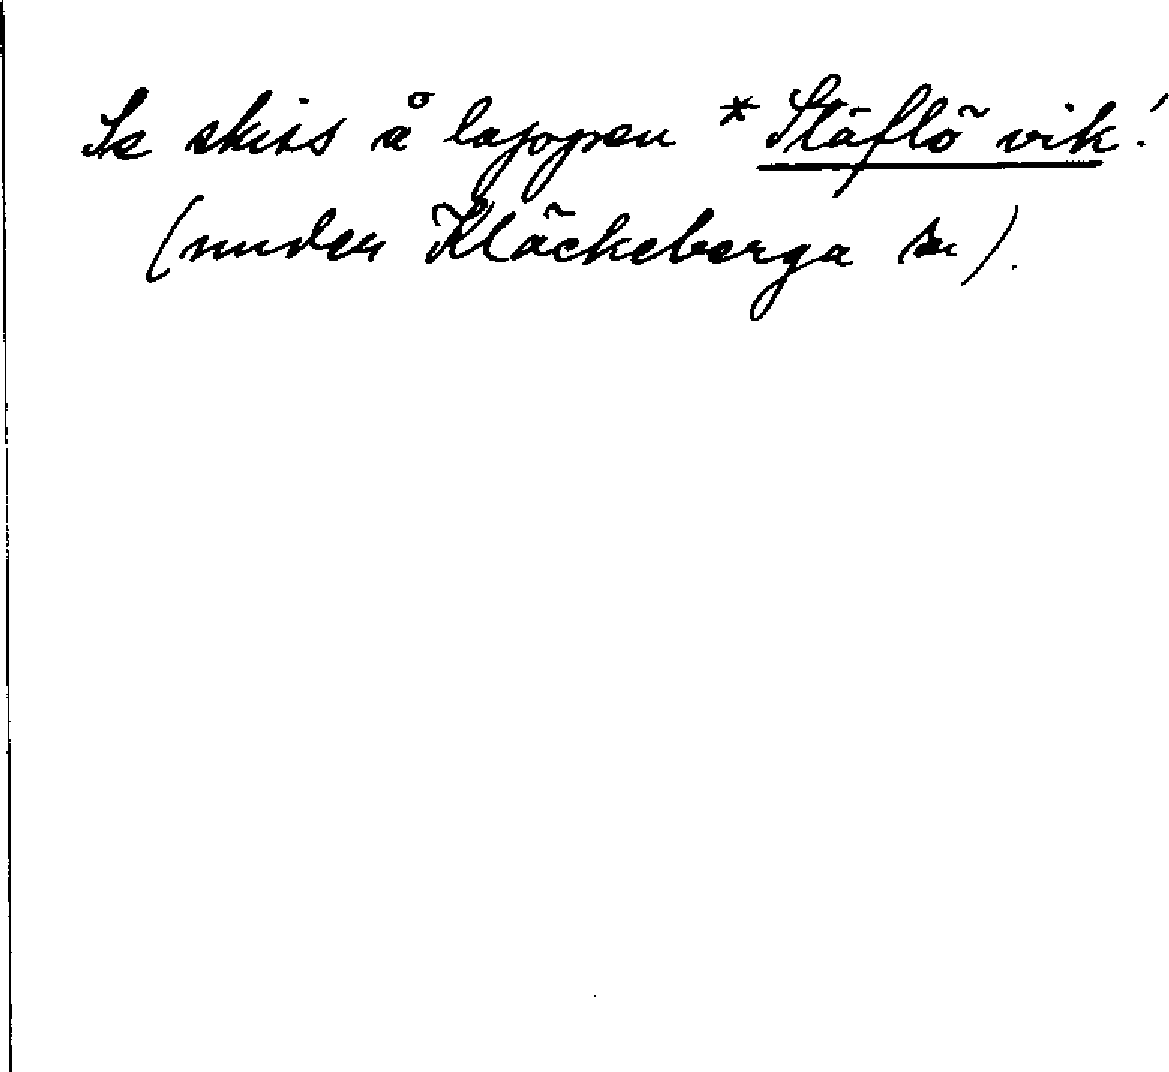 Se skiss å lappen * Stäflö vik!
(under Kläckeberga sn).